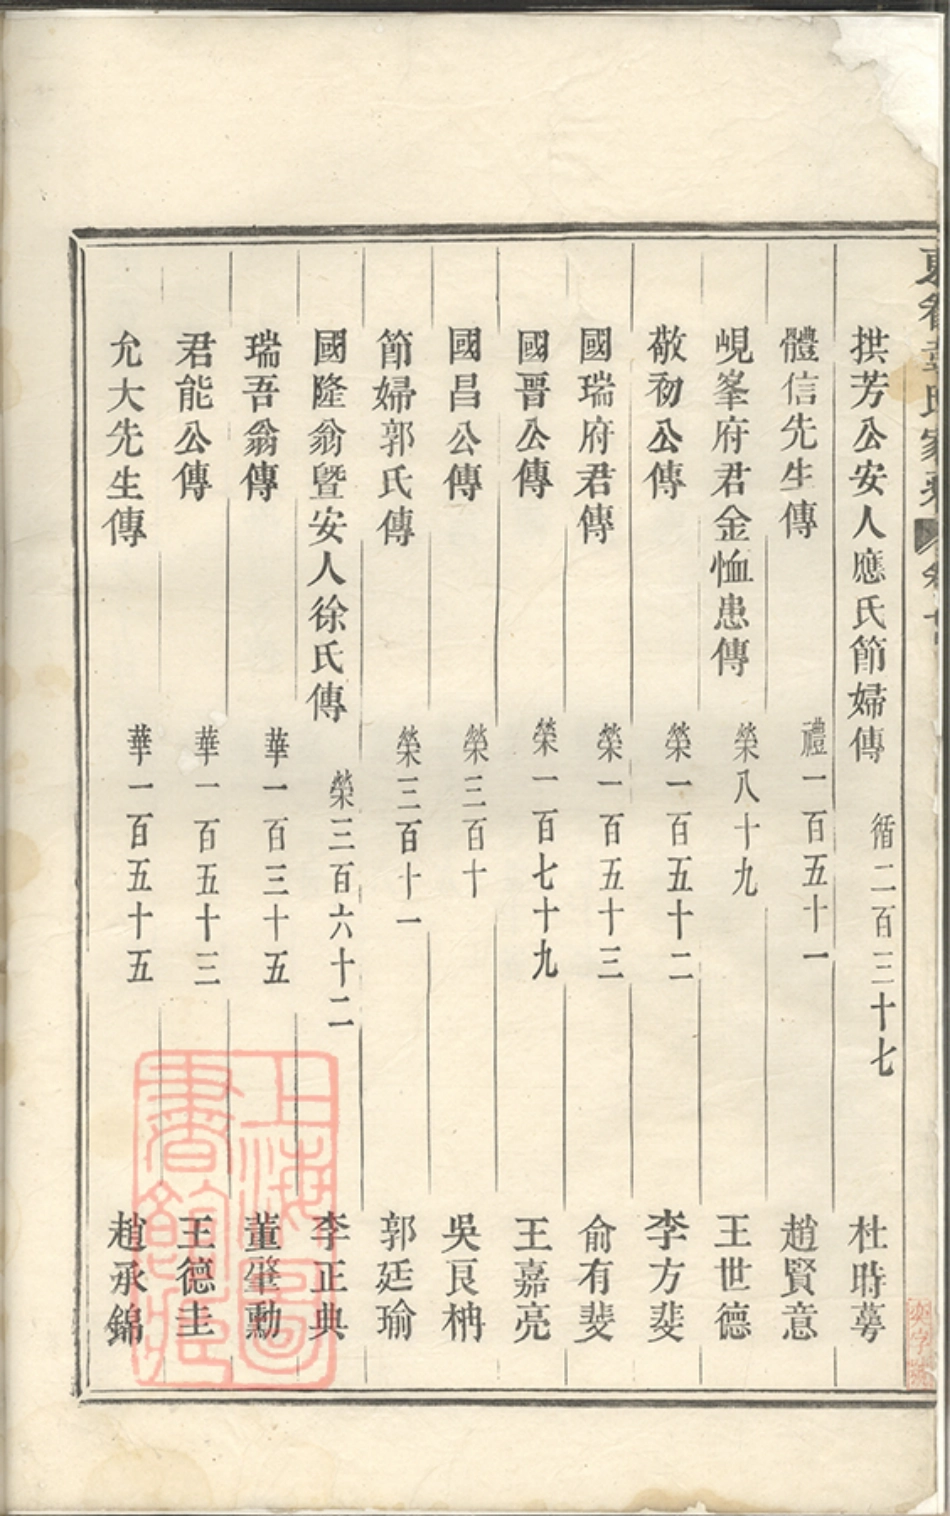 拱芳公安人應氏節婦傳 循二百三十七 杜時蕚
體信先生傳 禮一百五十一 趙賢意
峴峯府君金恤患傳 榮八十九 王世德
敬初公傳 榮一百五十二 李方斐
國瑞府君傳 榮一百五十三 俞有斐
國晋公傳 榮一百七十九 王嘉亮
國昌公傳 榮三百十 吳良柟
節婦郭氏傳 榮三百十一 郭廷瑜
國隆翁暨安人徐氏傳 榮三百六十二 李正典
瑞吾翁傳 華一百三十五 董肇勳
君能公傳 華一百五十三 王德圭
允大先生傳 華一百五十五 趙承錦
上海圖
書館藏